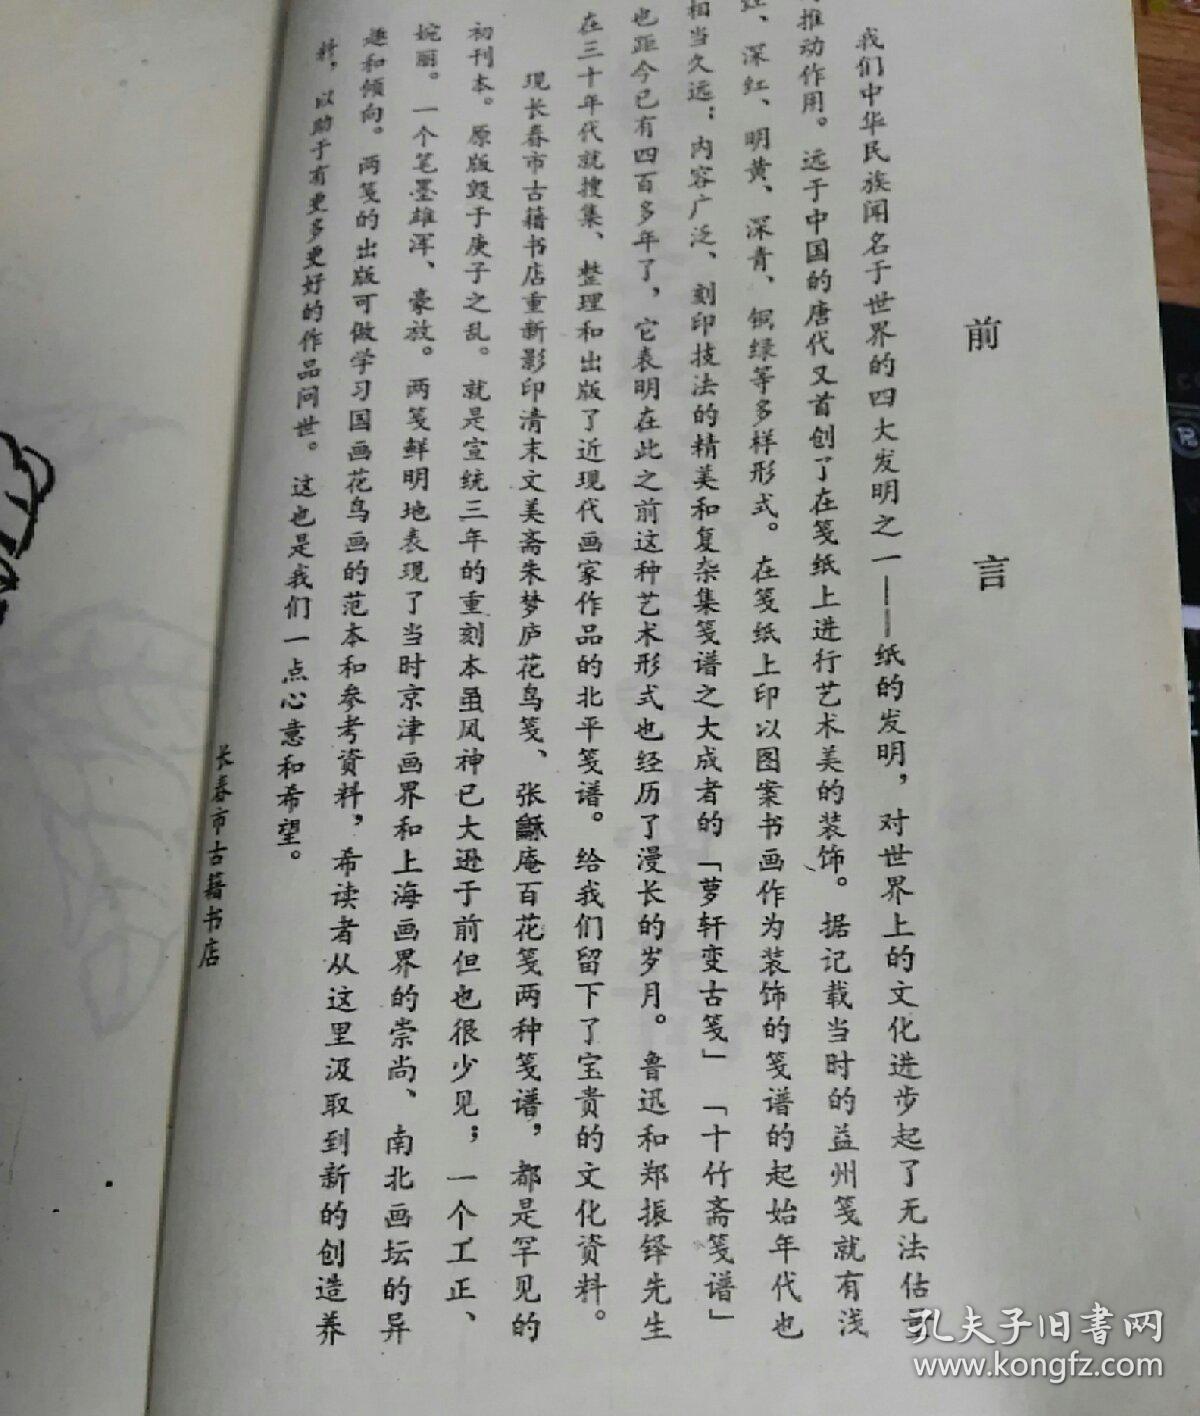 前言
我们中华民族闻名于世界的四大发明之一——纸的发明，对世界上的文化进步起了无法估
推动作用。远于中国的唐代又首创了在笺纸上进行艺术美的装饰。据记载当时的益州笺就有浅
红、深红、明黄、深青、铜绿等多样形式。在笺纸上印以图案书画作为装饰的笺谱的起始年代也
相当久远；内容广泛、刻印技法的精美和复杂集笺谱之大成者的「萝轩变古笺」「十竹斋笺谱」
也距今已有四百多年了，它表明在此之前这种艺术形式也经历了漫长的岁月。鲁迅和郑振铎先生
在三十年代就搜集、整理和出版了近现代画家作品的北平笺谱。给我们留下了宝贵的文化资料。
现长春市古籍书店重新影印清末文美斋朱梦庐花鸟笺、张龢庵百花笺两种笺谱，都是罕见的
初刊本。原版毁于庚子之乱。就是宣统三年的重刻本虽风神已大逊于前但也很少见；一个工正、
婉丽。一个笔墨雄浑、豪放。两笺鲜明地表现了当时京津画界和上海画界的崇尚、南北画坛的异
趣和倾向。两笺的出版可做学习国画花鸟画的范本和参考资料，希读者从这里汲取到新的创造养
料，以助于有更多更好的作品问世。这也是我们一点心意和希望。
长春市古籍书店
孔夫子旧书网
www.kongfz.com